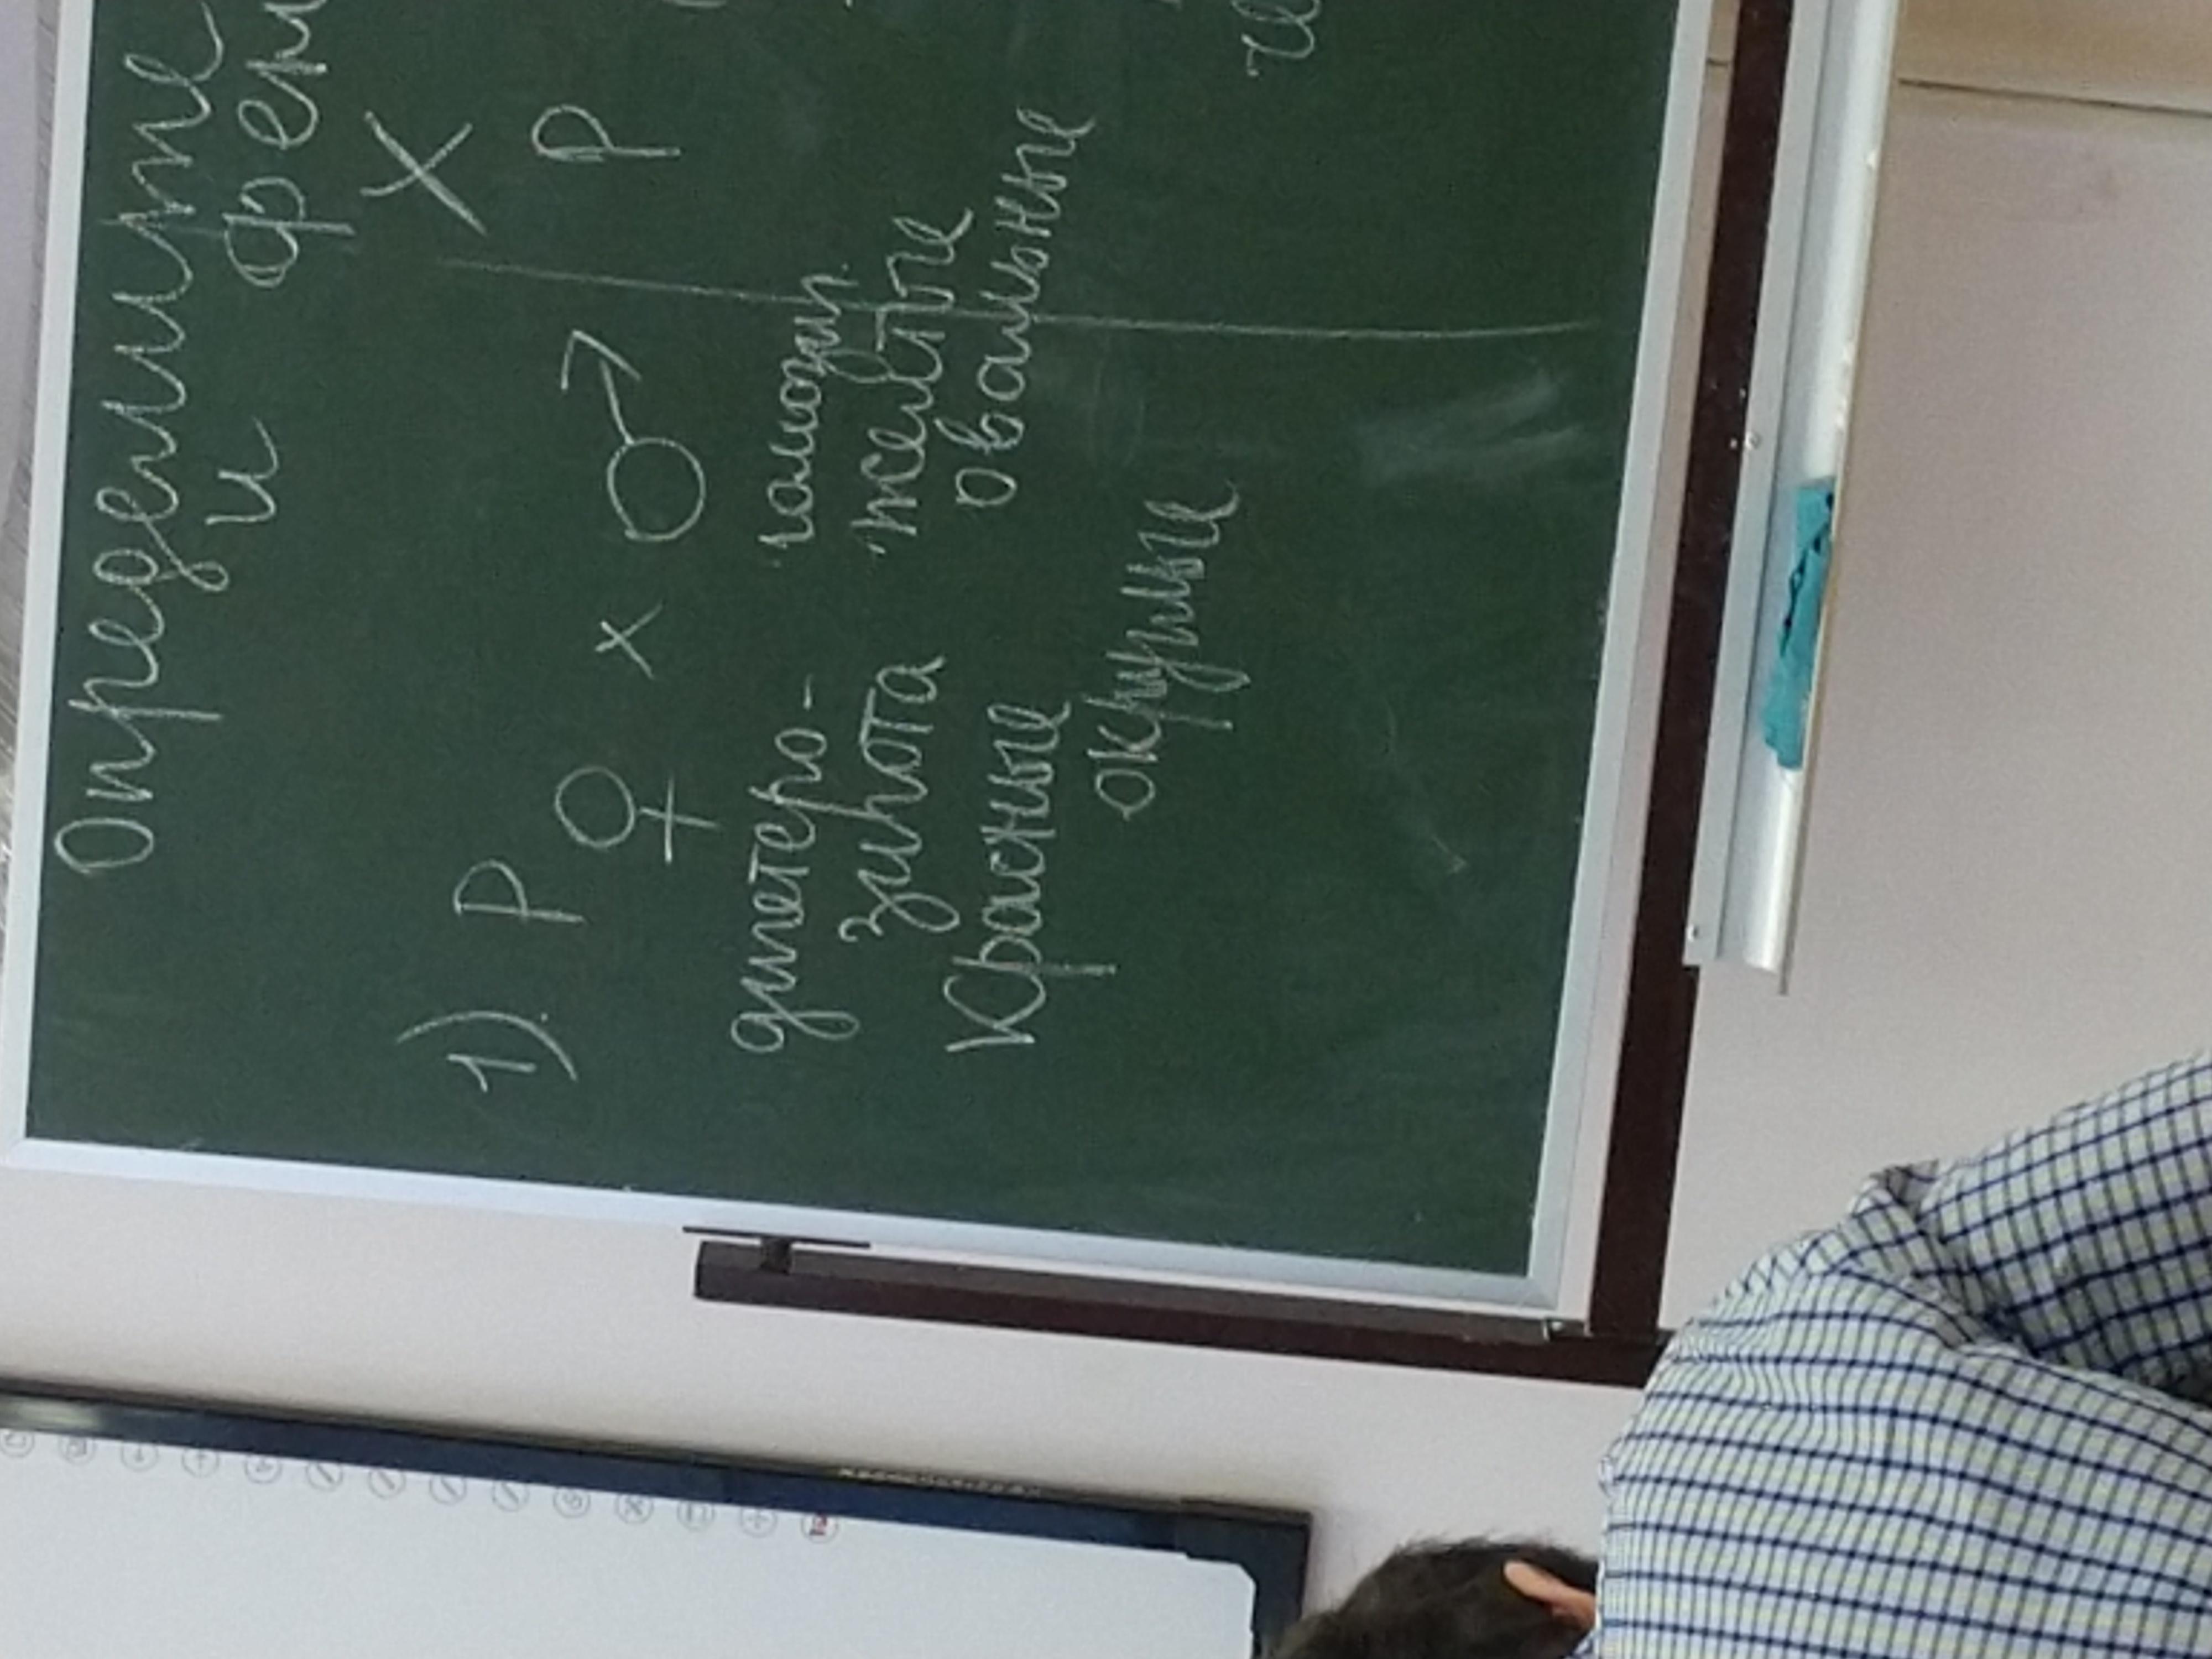 Определите
и фен
X
1) P ♀ x ♂
дигетеро-
зигота
красные
округлые
гомозиг.
желтые
овальные
P